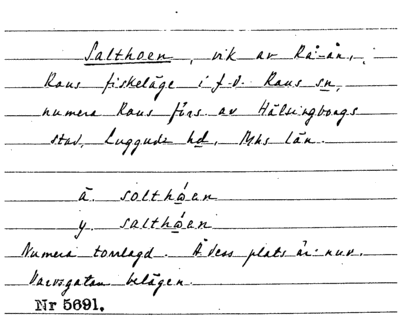 Salthoen, vik av Rå-ån,
Raus fiskeläge i f.d. Raus sn,
numera Raus förs. av Hälsingborgs
stad, Luggude hd, Mhs län.
ä. solthǿen
y. salthǿen
Numera torrlagd. Å dess plats är nuv.
belägen.
Nr 5691.